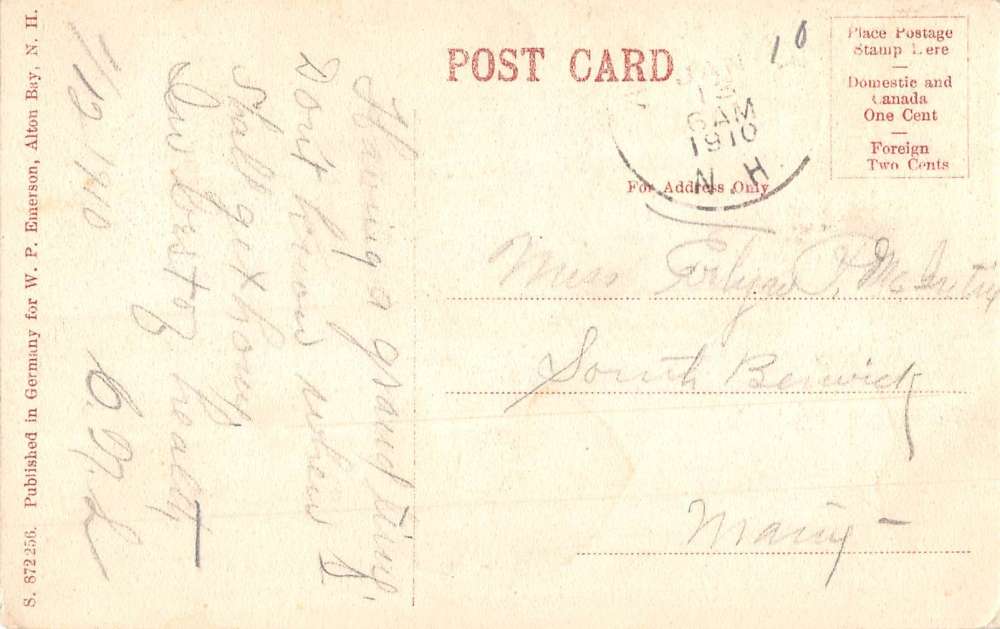 POST CARD
Place Postage
Stamp Here
Domestic and
Canada
One Cent
Foreign
Two Cents
10
JAN
6 AM
1910
N. H.
For Address Only
Miss P. McIntire
South Berwick
Maine
Having a grand time.
Dont know when I
Shall get home
Am best of health
1/12 1910
S. 872 256. Published in Germany for W. P. Emerson, Alton Bay, N. H.